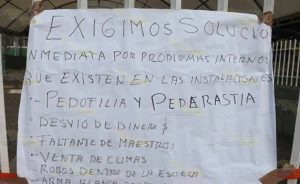 EXIGIMOS SOLUCIO
NMEDIATA POR PROBLEMAS INTERNOS
QUE EXISTEN EN LAS INSTALACIONES
- PEDOFILIA Y PEDERASTIA
- DESVIO DE DINERO $
- FALTANTE DE MAESTRO:
- VENTA DE CLIMAS
- ROBOS DENTRO DE LA ESCUELA
- ARMA BLANCA